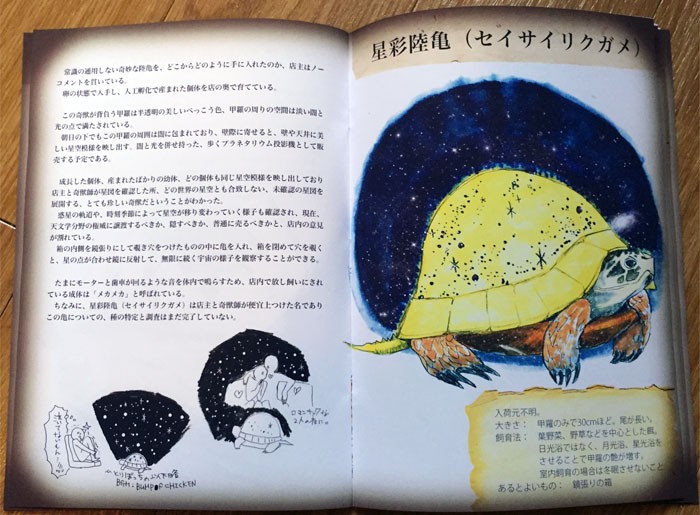 常識の通用しない奇妙な陸亀を、どこからどのように手に入れたのか、店主はノー
コメントを貫いている。
卵の状態で入手し、人工孵化で産まれた個体を店の奥で育てている。
この奇獣が背負う甲羅は半透明の美しいべっこう色、甲羅の周りの空間は淡い闇と
光の点で満たされている。
朝日の下でもこの甲羅の周囲は闇に包まれており、壁際に寄せると、壁や天井に美
しい星空模様を映し出す。闇と光を併せ持った、歩くプラネタリウム投影機として販
売する予定である。
成長した個体、産まれたばかりの幼体、どの個体も同じ星空模様を映し出しており
店主と奇獣師が星図を確認した所、どの世界の星空とも合致しない、未確認の星図を
展開する、とても珍しい奇獣だということがわかった。
惑星の軌道や、時刻季節によって星空が移り変わっていく様子も確認され、現在、
天文学分野の権威に譲渡するべきか、隠すべきか、普通に売るべきかと、店内の意見
が割れている。
箱の内側を鏡張りにして覗き穴をつけたものの中に亀を入れ、箱を閉めて穴を覗く
と、星の点が合わせ鏡に反射して、無限に続く宇宙の様子を観察することができる。
たまにモーターと歯車が回るような音を体内で鳴らすため、店内で放し飼いにされ
ている成体は「メカメカ」と呼ばれている。
ちなみに、星彩陸亀（セイサイリクガメ）は店主と奇獣師が便宜上つけた名であり
この亀についての、種の特定と調査はまだ完了していない。
ロマンチックな
2人の夜に♡
BGM：BUMP OF CHICKEN
星彩陸亀（セイサイリクガメ）
入荷元不明。
大きさ： 甲羅のみで30cmほど。尾が長い。
飼育法： 葉野菜、野草などを中心とした餌。
日光浴ではなく、月光浴、星光浴を
させることで甲羅の艶が増す。
室内飼育の場合は冬眠させないこと
あるとよいもの： 鏡張りの箱